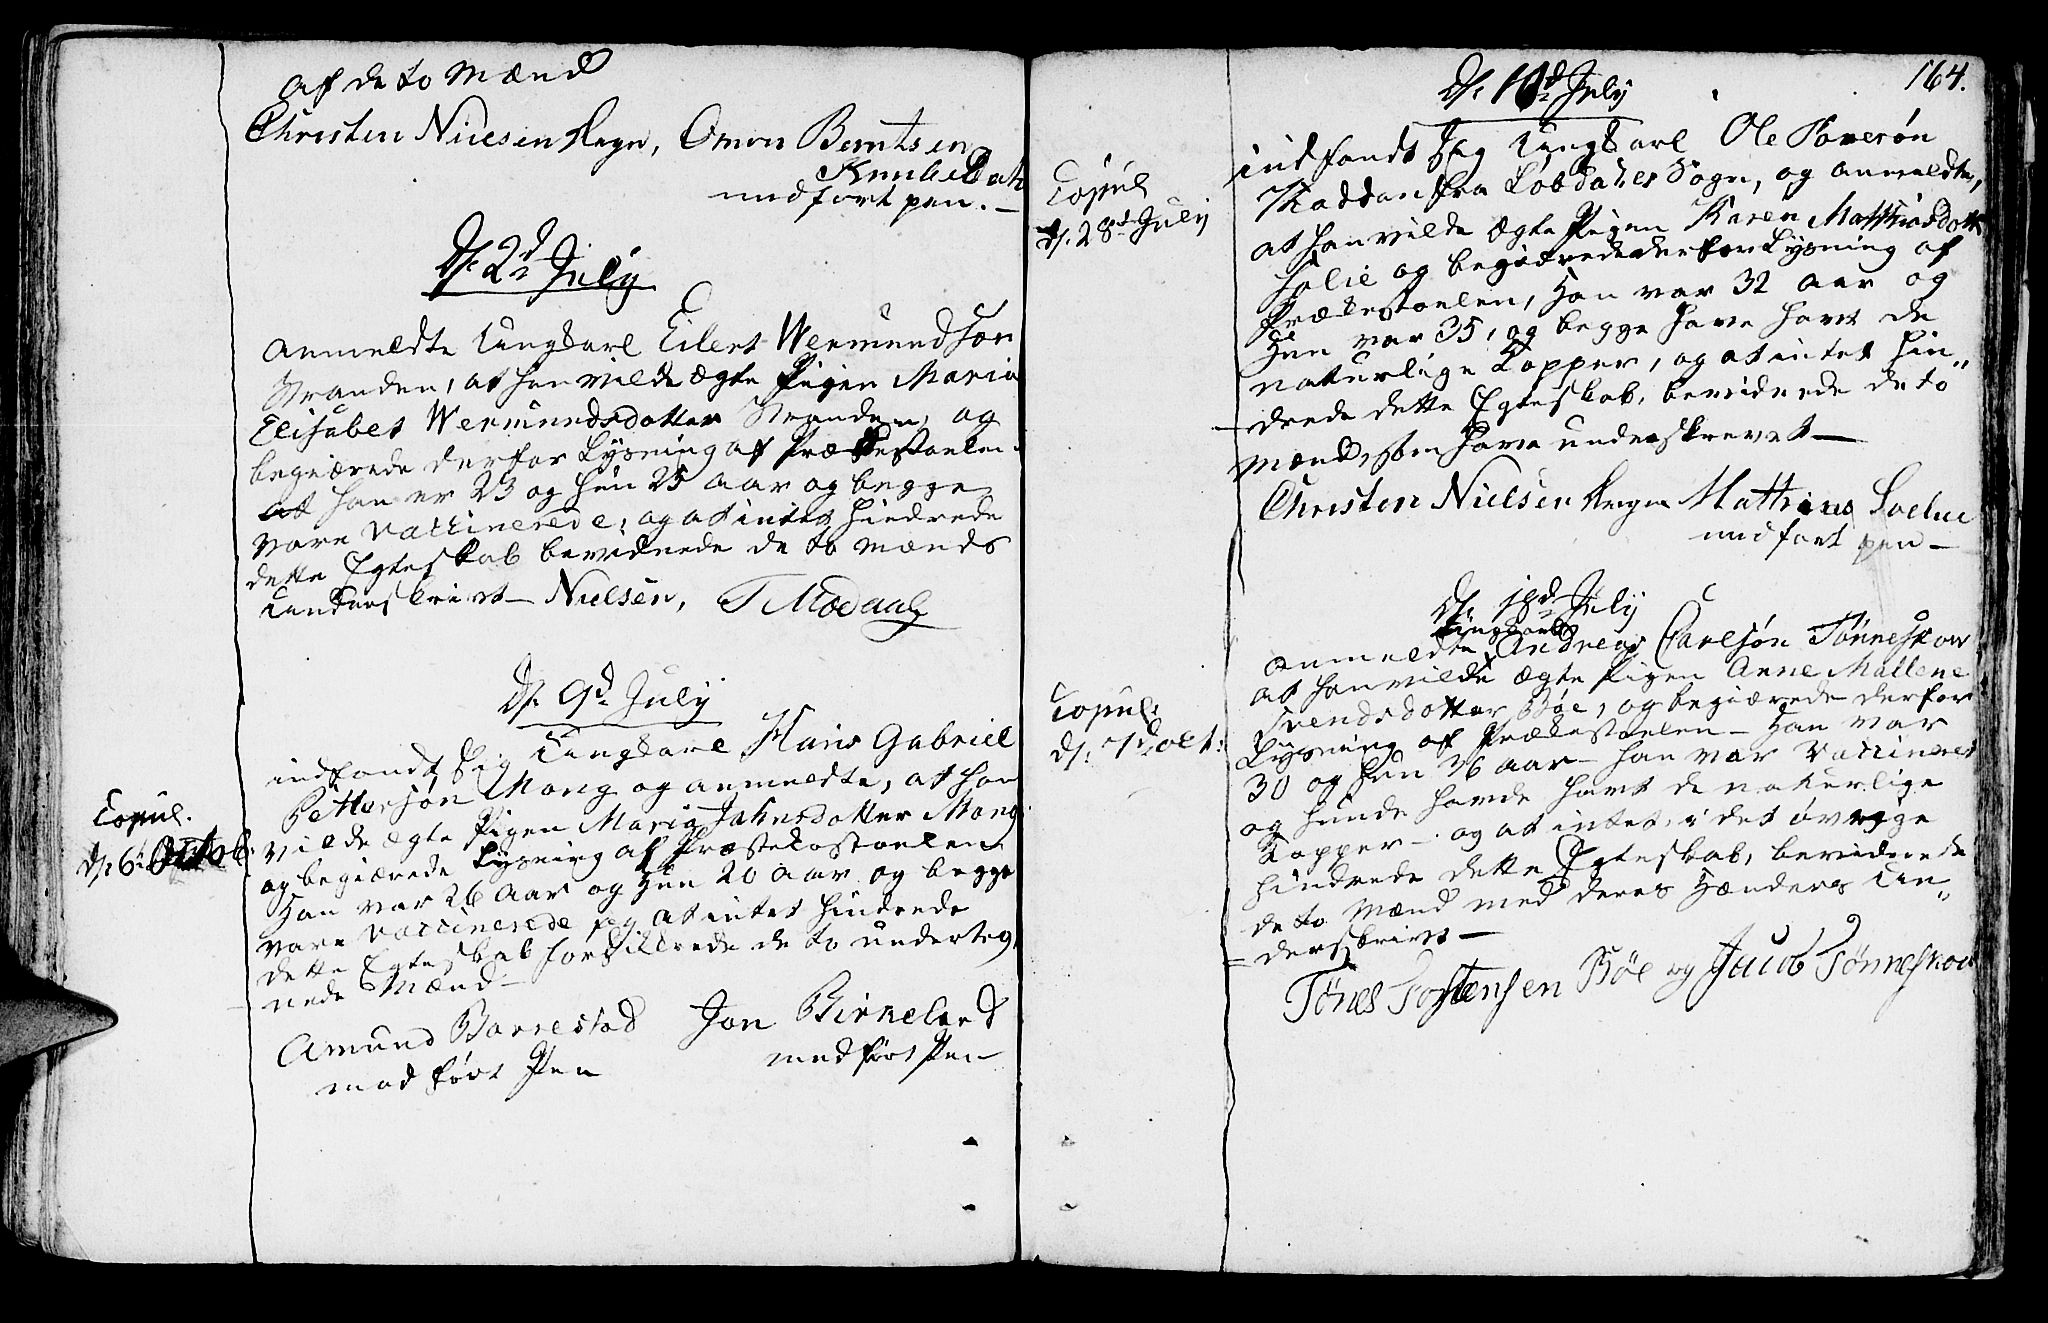 af de to Mænd
Christen Nielsen Regn, Omon Berntsen
med ført pen.
d. 2d July
Anmeldte Ungkarl Eilert Wermundsøn
Stranden, at han vilde ægte Pigen Maria
Elisabet Wermundsdotter Stranden, og
begiærede derfor Lysning af Prækestoelen.
at han er 23 og hun 25 aar og begge
vare vaccinerede, og at intet hindrede
dette Egteskab bevidnede de to mænds
Underskrivt - Nielsen, T Modaal
d. 9d July
indfandt sig Ungkarl Hans Gabriel
Pettersøn Mong og anmeldte, at han
vilde ægte Pigen Maria Johnsdotter Mong
og begiærede Lysning af Præstekestoelen
Han var 26 aar og Hun 20 aar og begge
vare vaccinerede og at intet hindrede
dette Egteskab forsikrede de to underteg-
nede Mænd -
Amund Barrestad Jon Birkeland
med ført Pen med ført Pen
Copul.
d. 6 Octob.
164.
d. 10d July
indfandt sig Ungkarl Ole
fra Sogn, og anmeldte,
at han vilde ægte Pigen Karen Matthiasdotter
og begiærede derfor Lysning af
Prækestoelen, Han var 32 aar og
Hun var 35, og begge have havt de
naturlige Kopper, og at intet hin-
drede dette Egteskab, bevidnede de to
Mænd, som have underskrevet -
Christen Nielsen Regn Matthias
med ført pen -
Copul
d. 28d July
d. 18d July
Ungkarl
anmeldte Andreas Carlsøn Tønneskov
at han vilde ægte Pigen Anne Mallene
Svendsdotter Bøe, og begiærede derfor
Lysning af Prækestoelen - Han var
30 og hun 36 aar - han var vaccineret
og hunde havde havt de naturlige
Kopper - og at intet i det øvrige
hindrede dette Egteskab, bevidnede
de to Mænd med deres Hænders Un-
derskrivt -
Tønes Tostensen Bøe og Jacob Tønneskov
Copul:
d. 7d Oct: